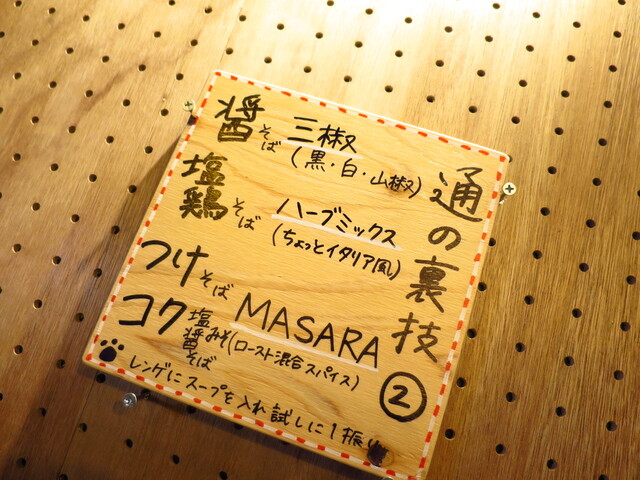 通の裏技
②
醤そば 三椒
(黒・白・山椒)
塩鶏そば ハーブミックス
(ちょっとイタリア風)
つけそば MASARA
コク塩醤みそそば (ロースト混合スパイス)
レンゲにスープを入れ試しに1振り